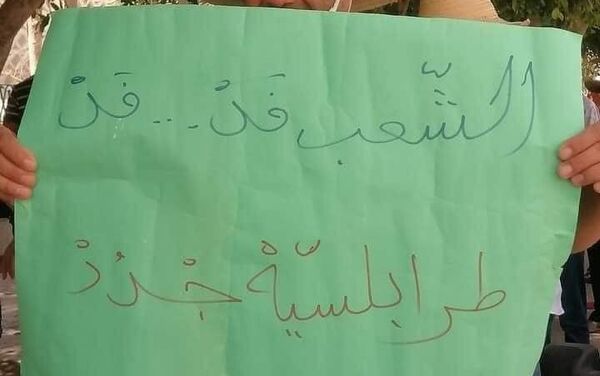 الشّعب فَدْ ... فَدْ
طرابلسيّةْ جْدُدْ